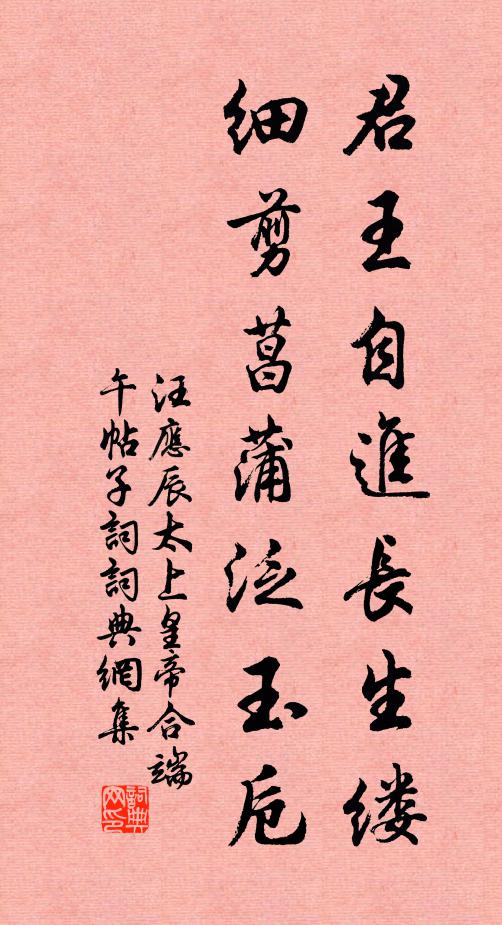 君王自進長生缕
细剪菖蒲泛玉卮
汪應辰太上皇帝合端
午帖子詞詞典網集
詞典
网印